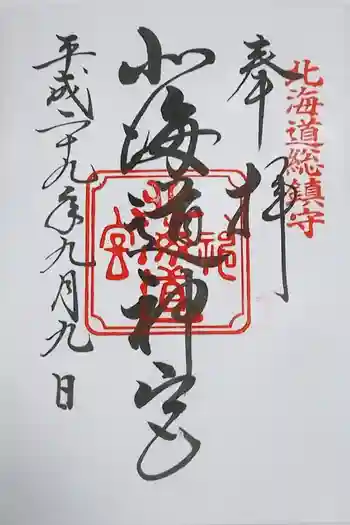 北海道総鎮守
奉拝
北海道神宮
平成二十九年九月九日
北海道神宮